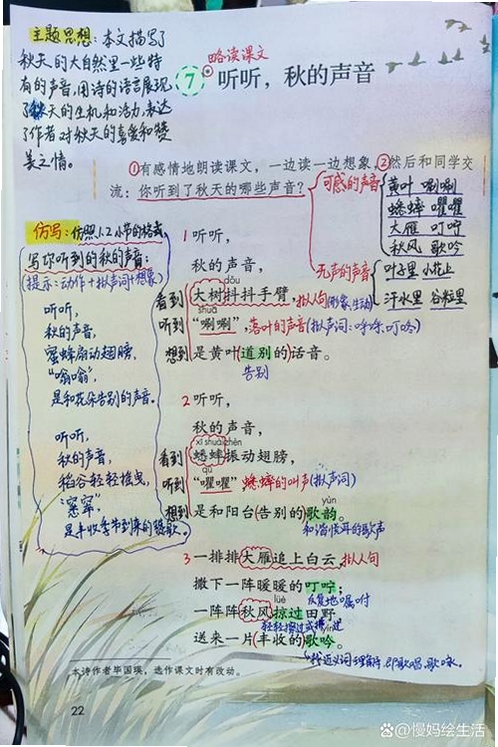 主题思想：本文描写了
秋天的大自然里一些特
有的声音，用诗的语言展现
了秋天的生机和活力，表达
了作者对秋天的喜爱和赞
美之情。
略读课文
7 听听，秋的声音
①有感情地朗读课文，一边读一边想象，②然后和同学交
流：你听到了秋天的哪些声音？
可感的声音
黄叶 唰唰
蟋蟀 㘗㘗
大雁 叮咛
秋风 歌吟
无声的声音
叶子里 小花上
汗水里 谷粒里
仿写：仿照1.2小节的格式
写你听到的秋的声音：
(提示：动作+拟声词+想象)
听听，
秋的声音，
蜜蜂扇动翅膀，
“嗡嗡”，
是和花朵告别的声音。
听听，
秋的声音，
稻谷轻轻摇曳，
“窸窣”，
是丰收季节到来的
1 听听，
秋的声音，
dǒu
看到 大树抖抖手臂，拟人句(形象、生动)
shuā
听到 “唰唰”，落叶的声音(拟声词：呼呼 叮咚)
想到 是黄叶道别的话音。
告别
2 听听，
秋的声音，
xī shuài zhèn
看到 蟋蟀振动翅膀，
qú
听到 “㘗㘗”，蟋蟀的叫声(拟声词)
yùn
想到 是和阳台告别的歌韵。
和谐悦耳的歌声
3 一排排大雁追上白云，拟人句
撒下一阵暖暖的叮咛；
反复地嘱咐
lüè
一阵阵秋风掠过田野，
轻轻擦过或拂过
yín
送来一片丰收的歌吟。
找近义词理解，即歌唱、歌咏。
本诗作者毕国瑛，选作课文时有改动。
22
@慢妈绘生活